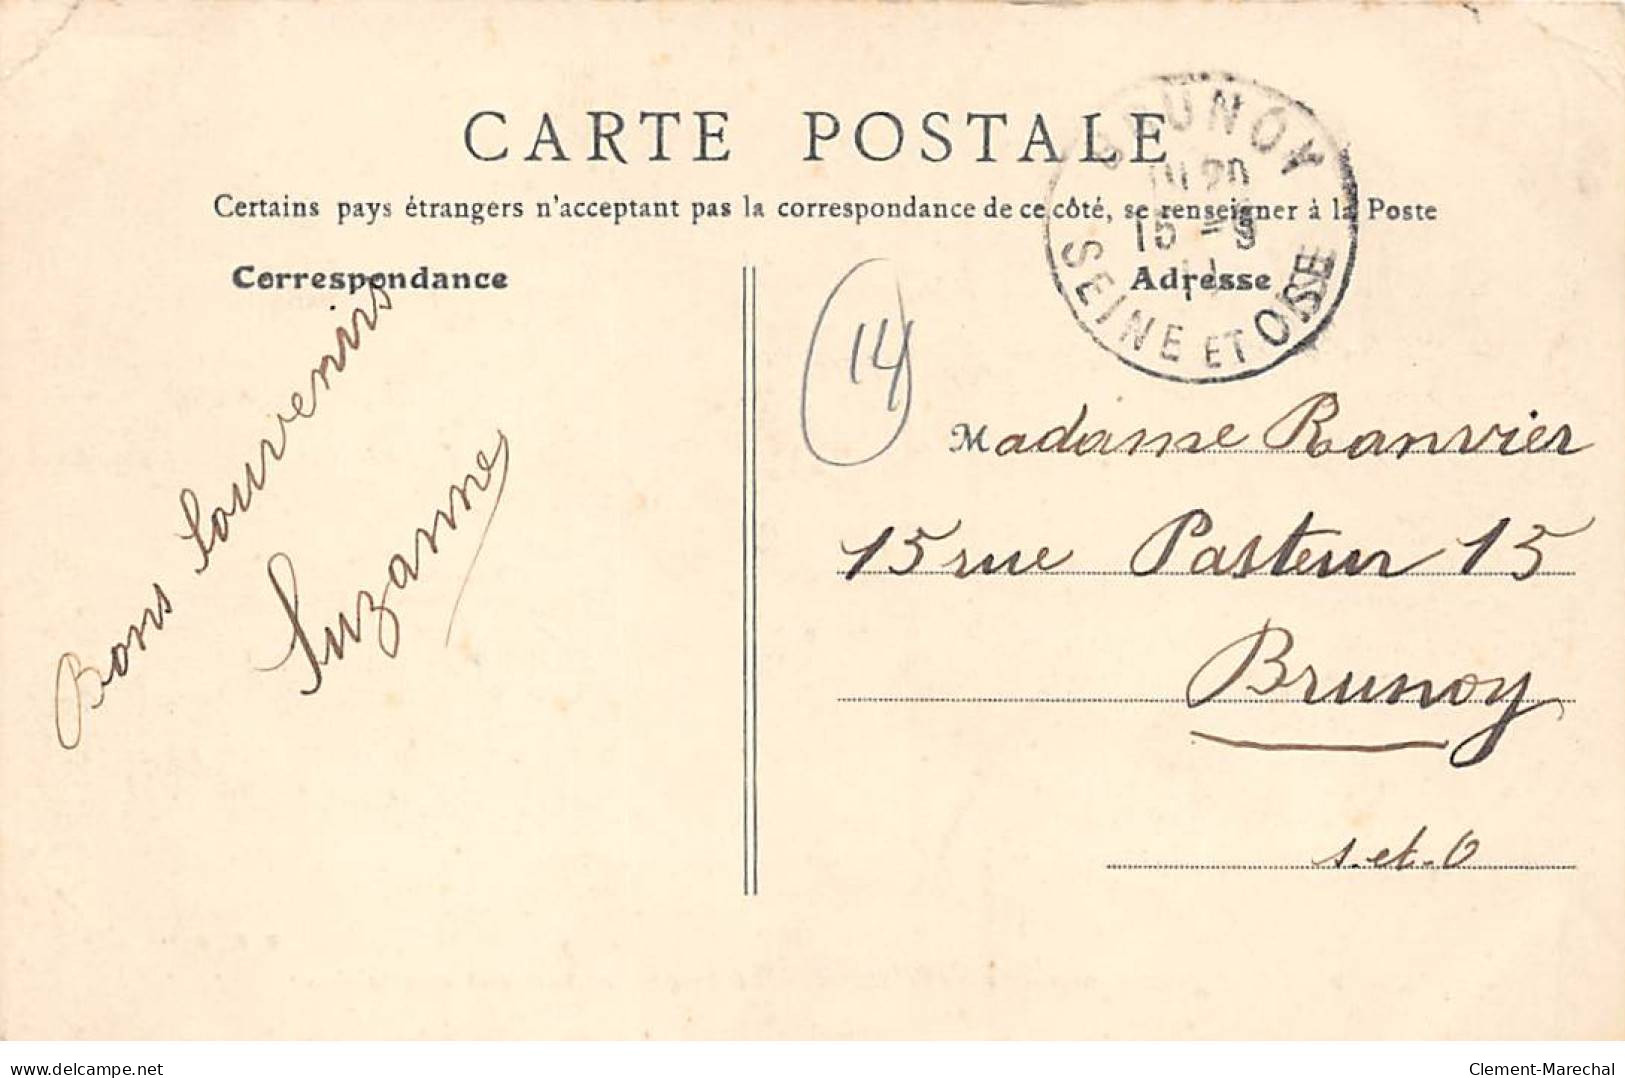 CARTE POSTALE
Certains pays étrangers n'acceptant pas la correspondance de ce côté, se renseigner à la Poste
Correspondance
Adresse
BRUNOY
15 -9
11
SEINE ET OISE
14
Bons Souvenirs
Suzanne
Madame Ranvier
15 rue Pasteur 15
Brunoy
s.et.O
delcampe.net
Clement-Marechal